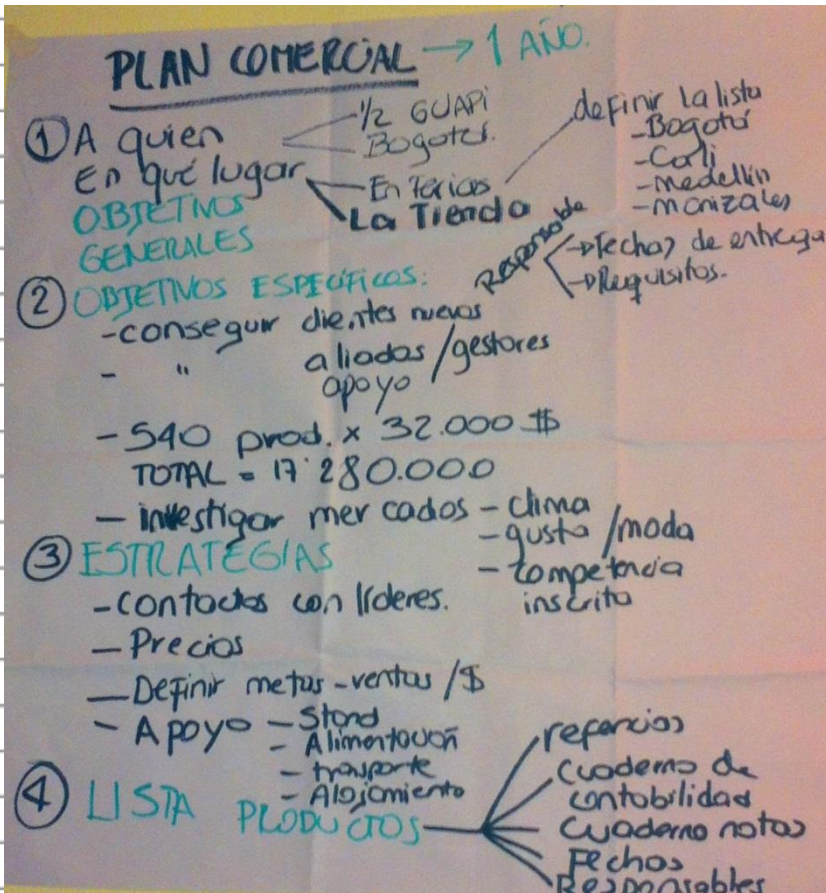 PLAN COMERCIAL → 1 AÑO.
① A quien
1/2 GUAPI
Bogotá.
En qué lugar
En Ferias
La Tienda
definir la lista
- Bogotá
- Cali
- medellin
- manizales
OBJETIVOS
GENERALES
Responsable
→ Fechas de entrega
→ Requisitos.
② OBJETIVOS ESPECÍFICOS:
- conseguir clientes nuevos
- " aliados / gestores
apoyo
- 540 prod. x 32.000 $
TOTAL = 17'280.000
- investigar mercados - clima
- gusto / moda
- competencia
inscrita
③ ESTRATEGIAS
- contactos con líderes.
- Precios
- Definir metas - ventas / $
- Apoyo - Stand
- Alimentación
- trasporte
- Alojamiento
④ LISTA PRODUCTOS
refencias
Cuaderno de
contabilidad
Cuaderno notas
Fechas
Responsables